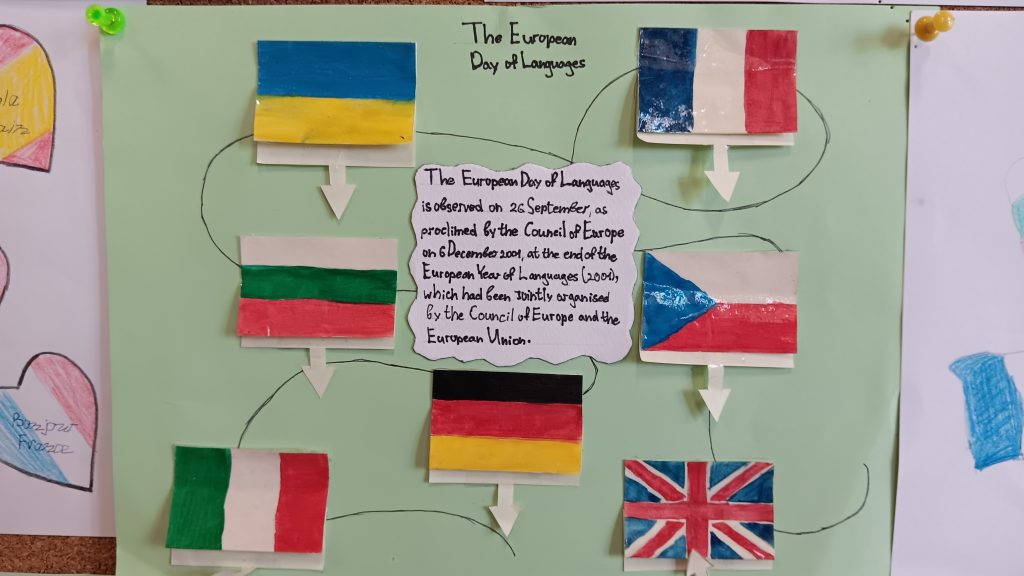 The European
Day of Languages
The European Day of Languages
is observed on 26 September, as
proclimed by the Council of Europe
on 6 December 2001, at the end of the
European Year of Languages (2001),
which had been Jointly organised
by the Council of Europe and the
European Union.
Bonjour
France